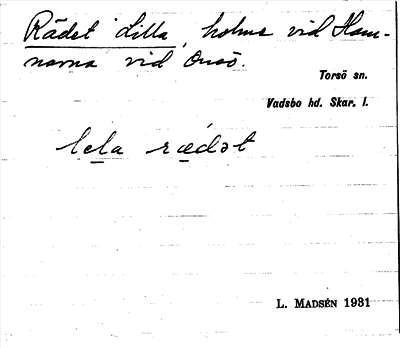 Rädet Lilla, holme vid Ham-
narna vid Onsö.
Torsö sn.
Vadsbo hd. Skar. l.
lela rædət
L. MADSÉN 1931